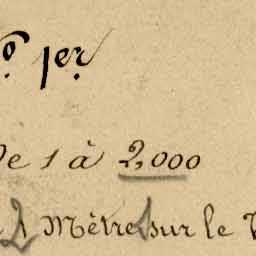 º 1er
de 1 à 2,000
Mètre sur le